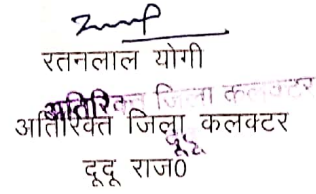 रतनलाल योगी
अतिरिक्त जिला कलक्टर
अतिरिक्त जिला कलक्टर
दूदू
दूदू राज0